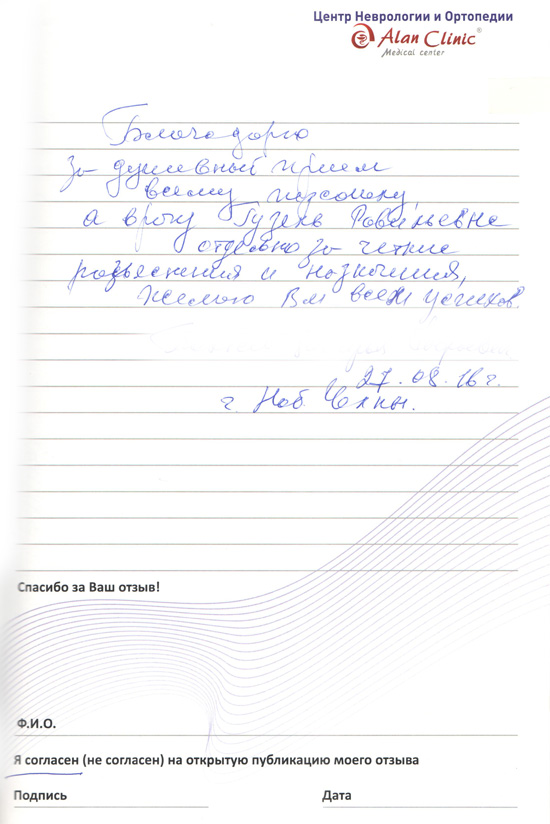 Центр Неврологии и Ортопедии
Alan Clinic®
Medical center
Благодарю
За душевный прием
всему персоналу,
а врачу Гузель Равильевне
отдельно за четкие
разъяснения и назначения,
Желаю Вам всем успехов.
27.08.16 г.
г. Наб. Челны.
Спасибо за Ваш отзыв!
Ф.И.О.
Я согласен (не согласен) на открытую публикацию моего отзыва
Подпись Дата